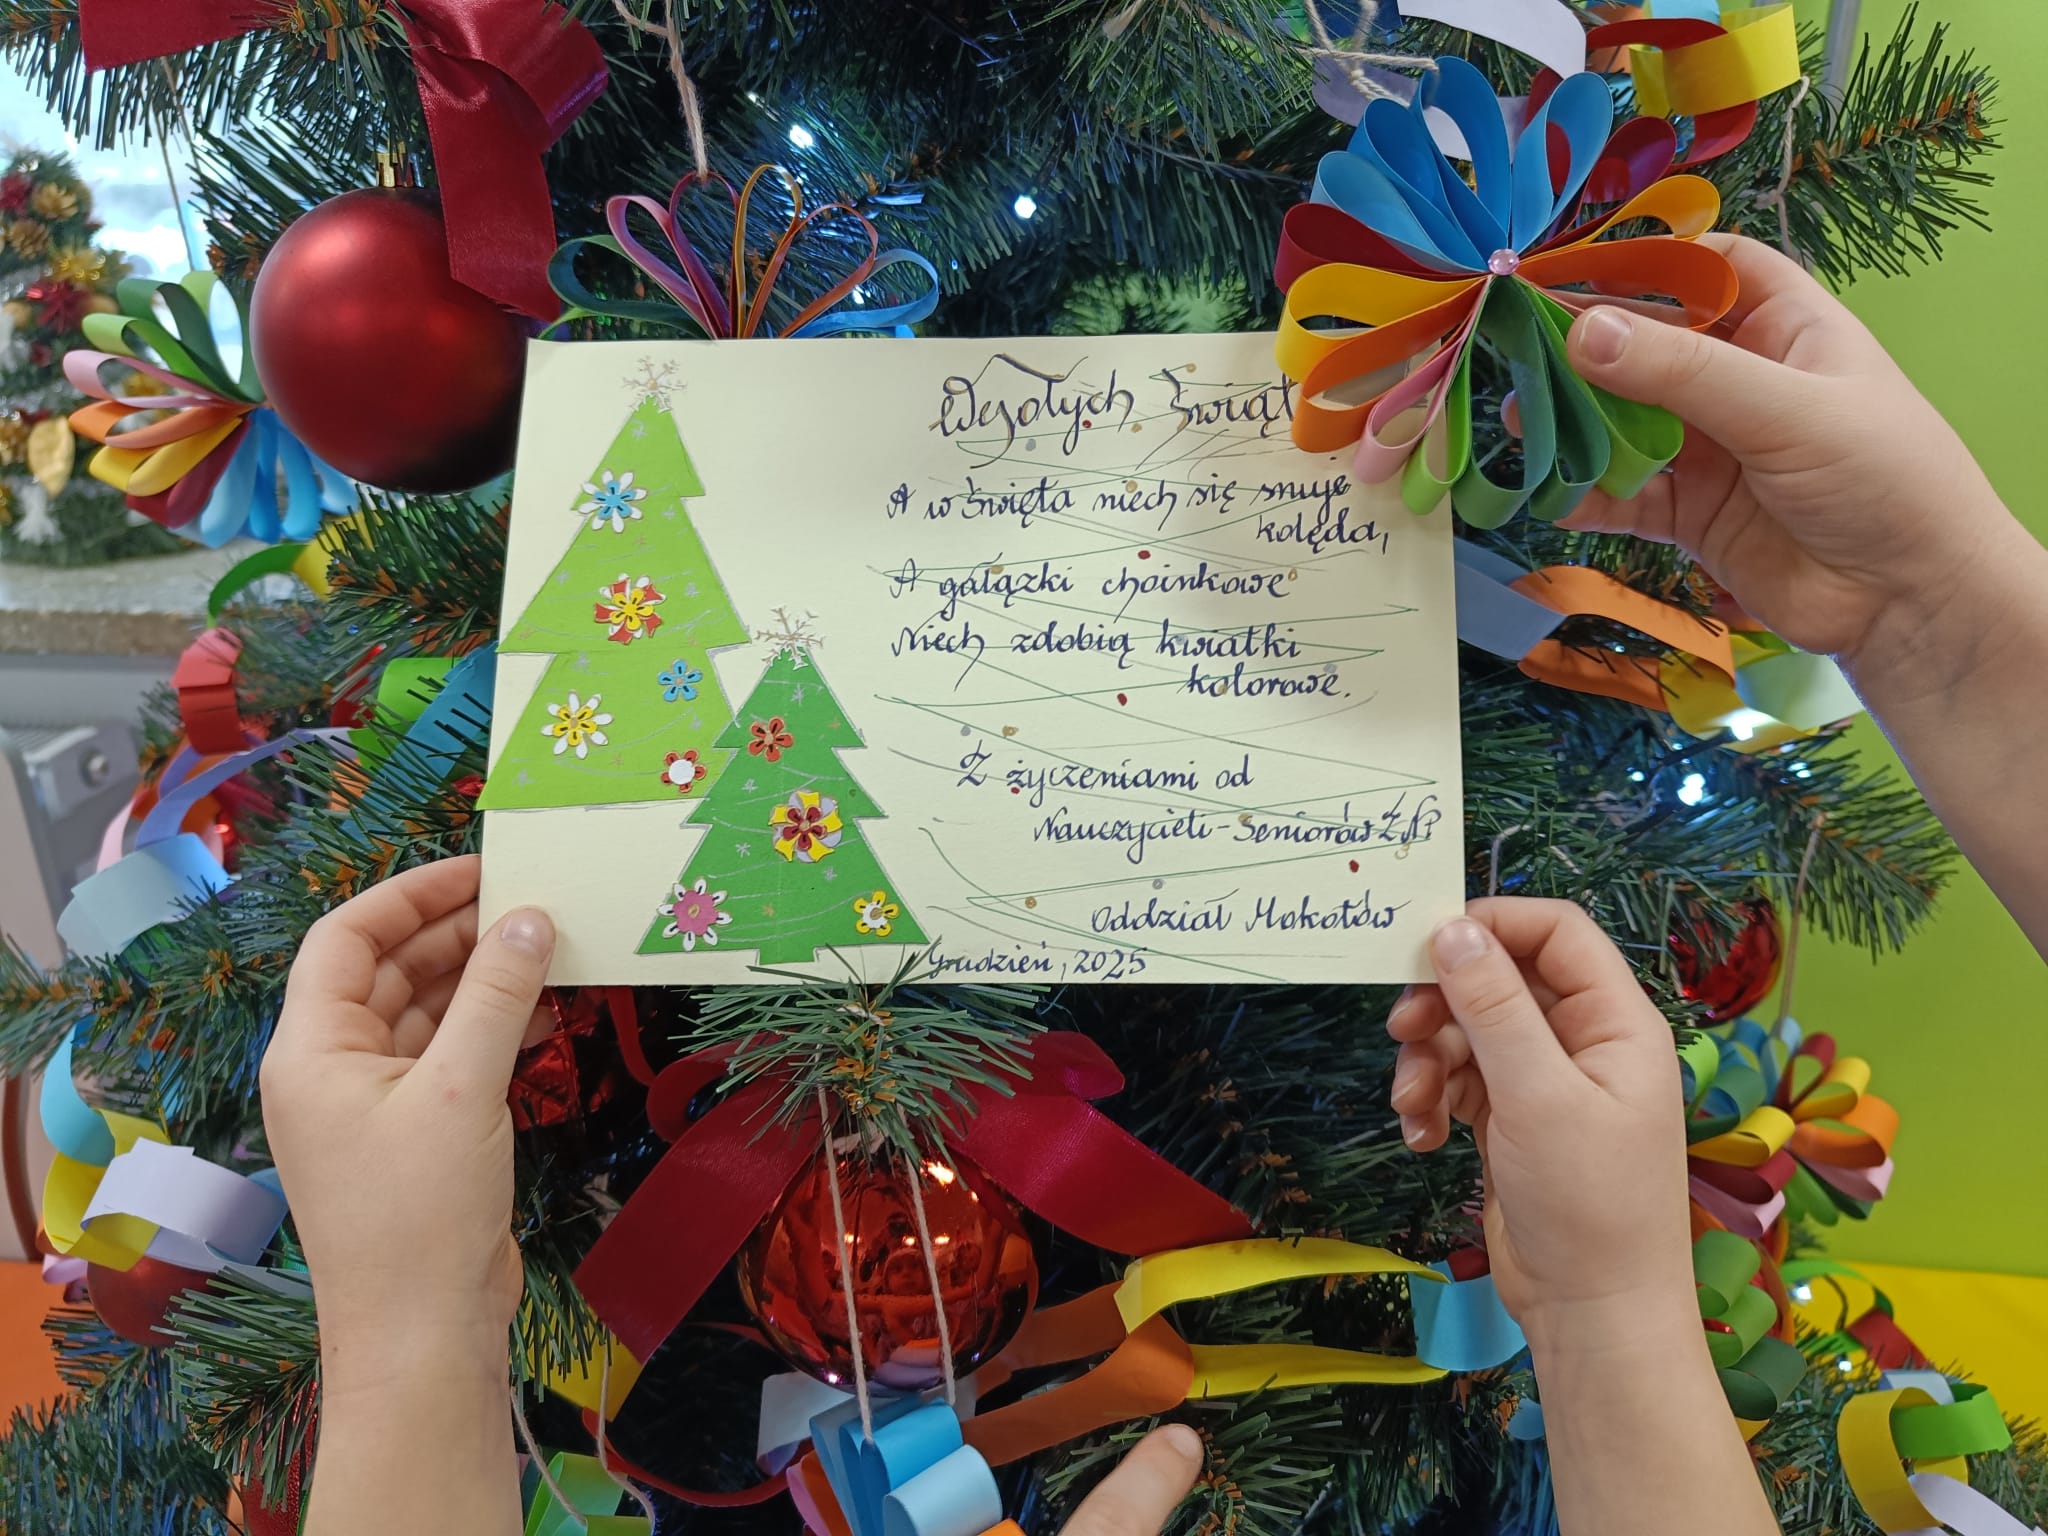 Wesołych Świąt
A w Święta niech się snuje
kolęda,
A gałązki choinkowe
Niech zdobią kwiatki
kolorowe.
Z życzeniami od
Nauczycieli-Seniorów ZNP
Oddział Mokotów
Grudzień, 2025